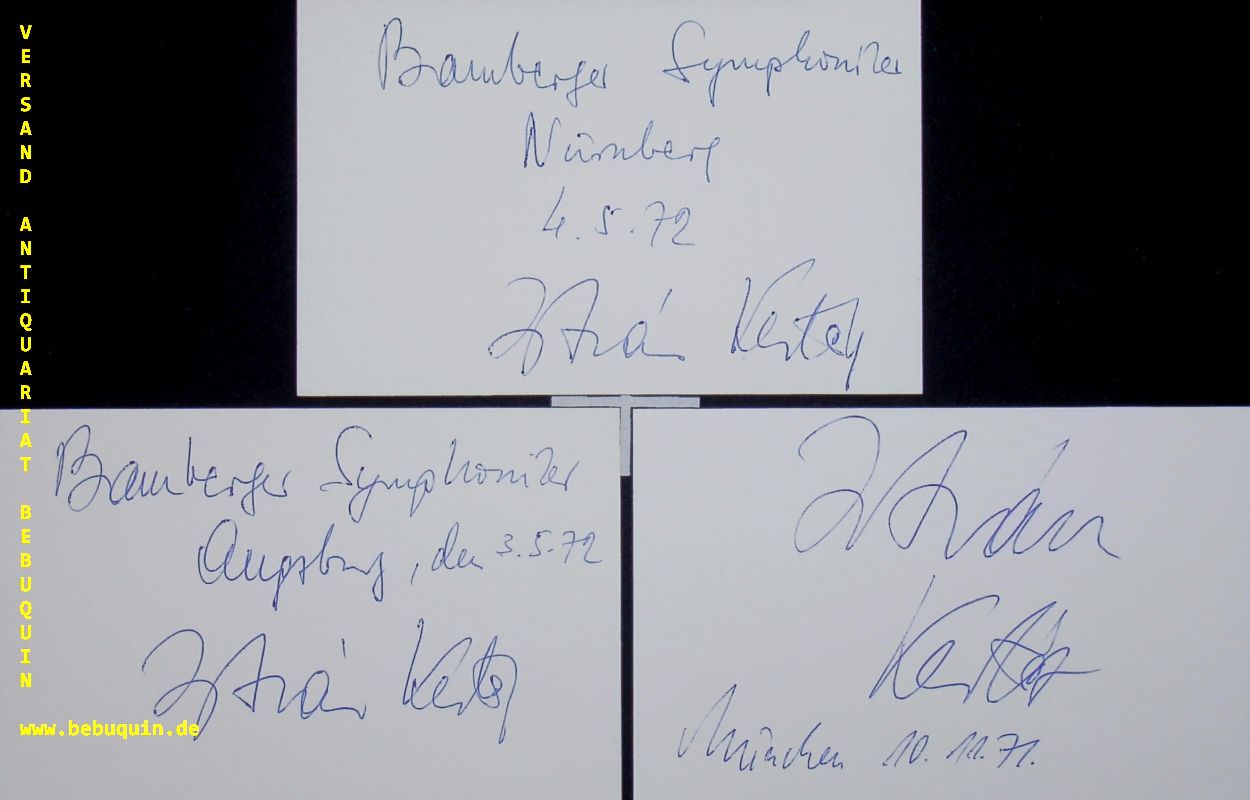 Bamberger Symphoniker
Nürnberg
4.5.72
István Kertész
Bamberger Symphoniker
Augsburg, den 3.5.72
István Kertész
István
Kertész
München 10.11.71.
VERSAND ANTIQUARIAT BEBUQUIN
www.bebuquin.de